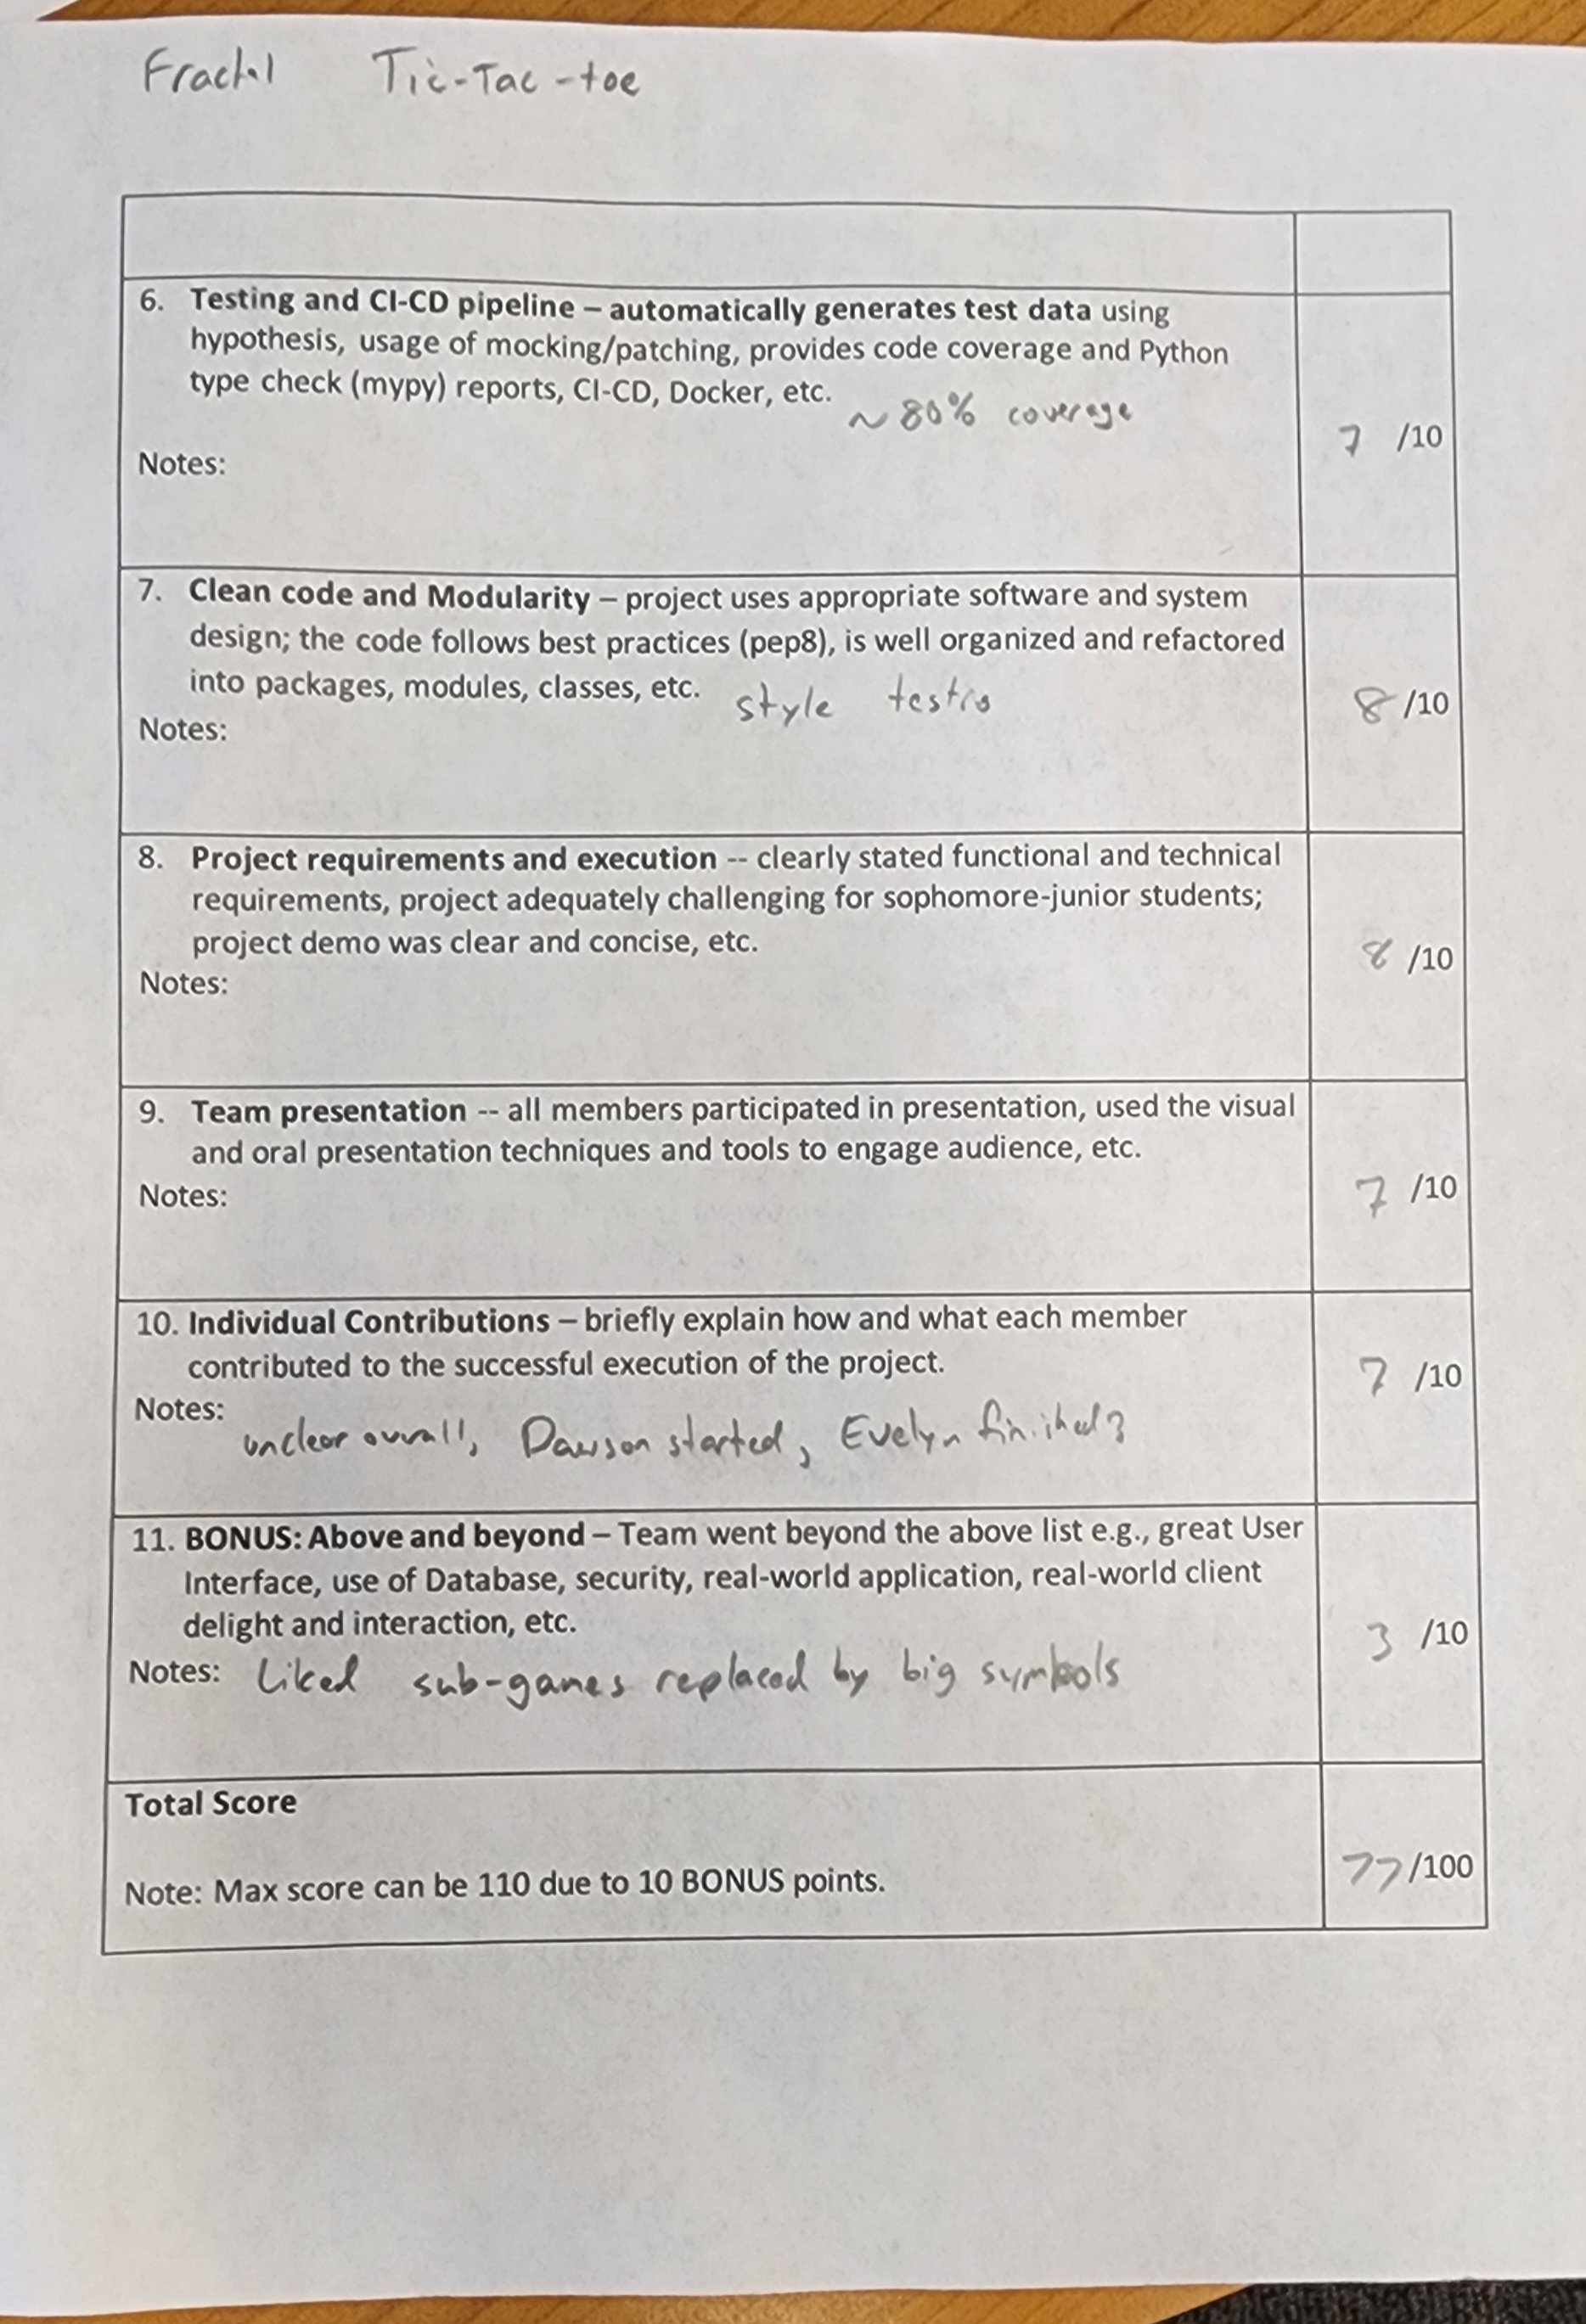 Fractal Tic-Tac-toe
6. Testing and CI-CD pipeline – automatically generates test data using
hypothesis, usage of mocking/patching, provides code coverage and Python
type check (mypy) reports, CI-CD, Docker, etc.
~80% coverage
7 /10
Notes:
7. Clean code and Modularity – project uses appropriate software and system
design; the code follows best practices (pep8), is well organized and refactored
into packages, modules, classes, etc. style
8 /10
Notes:
8. Project requirements and execution -- clearly stated functional and technical
requirements, project adequately challenging for sophomore-junior students;
project demo was clear and concise, etc.
8 /10
Notes:
9. Team presentation -- all members participated in presentation, used the visual
and oral presentation techniques and tools to engage audience, etc.
7 /10
Notes:
10. Individual Contributions – briefly explain how and what each member
contributed to the successful execution of the project.
7 /10
Notes:
unclear overall, Dawson started, Evelyn finished?
11. BONUS: Above and beyond – Team went beyond the above list e.g., great User
Interface, use of Database, security, real-world application, real-world client
delight and interaction, etc.
3 /10
Notes: Liked sub-games replaced by big symbols
Total Score
77/100
Note: Max score can be 110 due to 10 BONUS points.